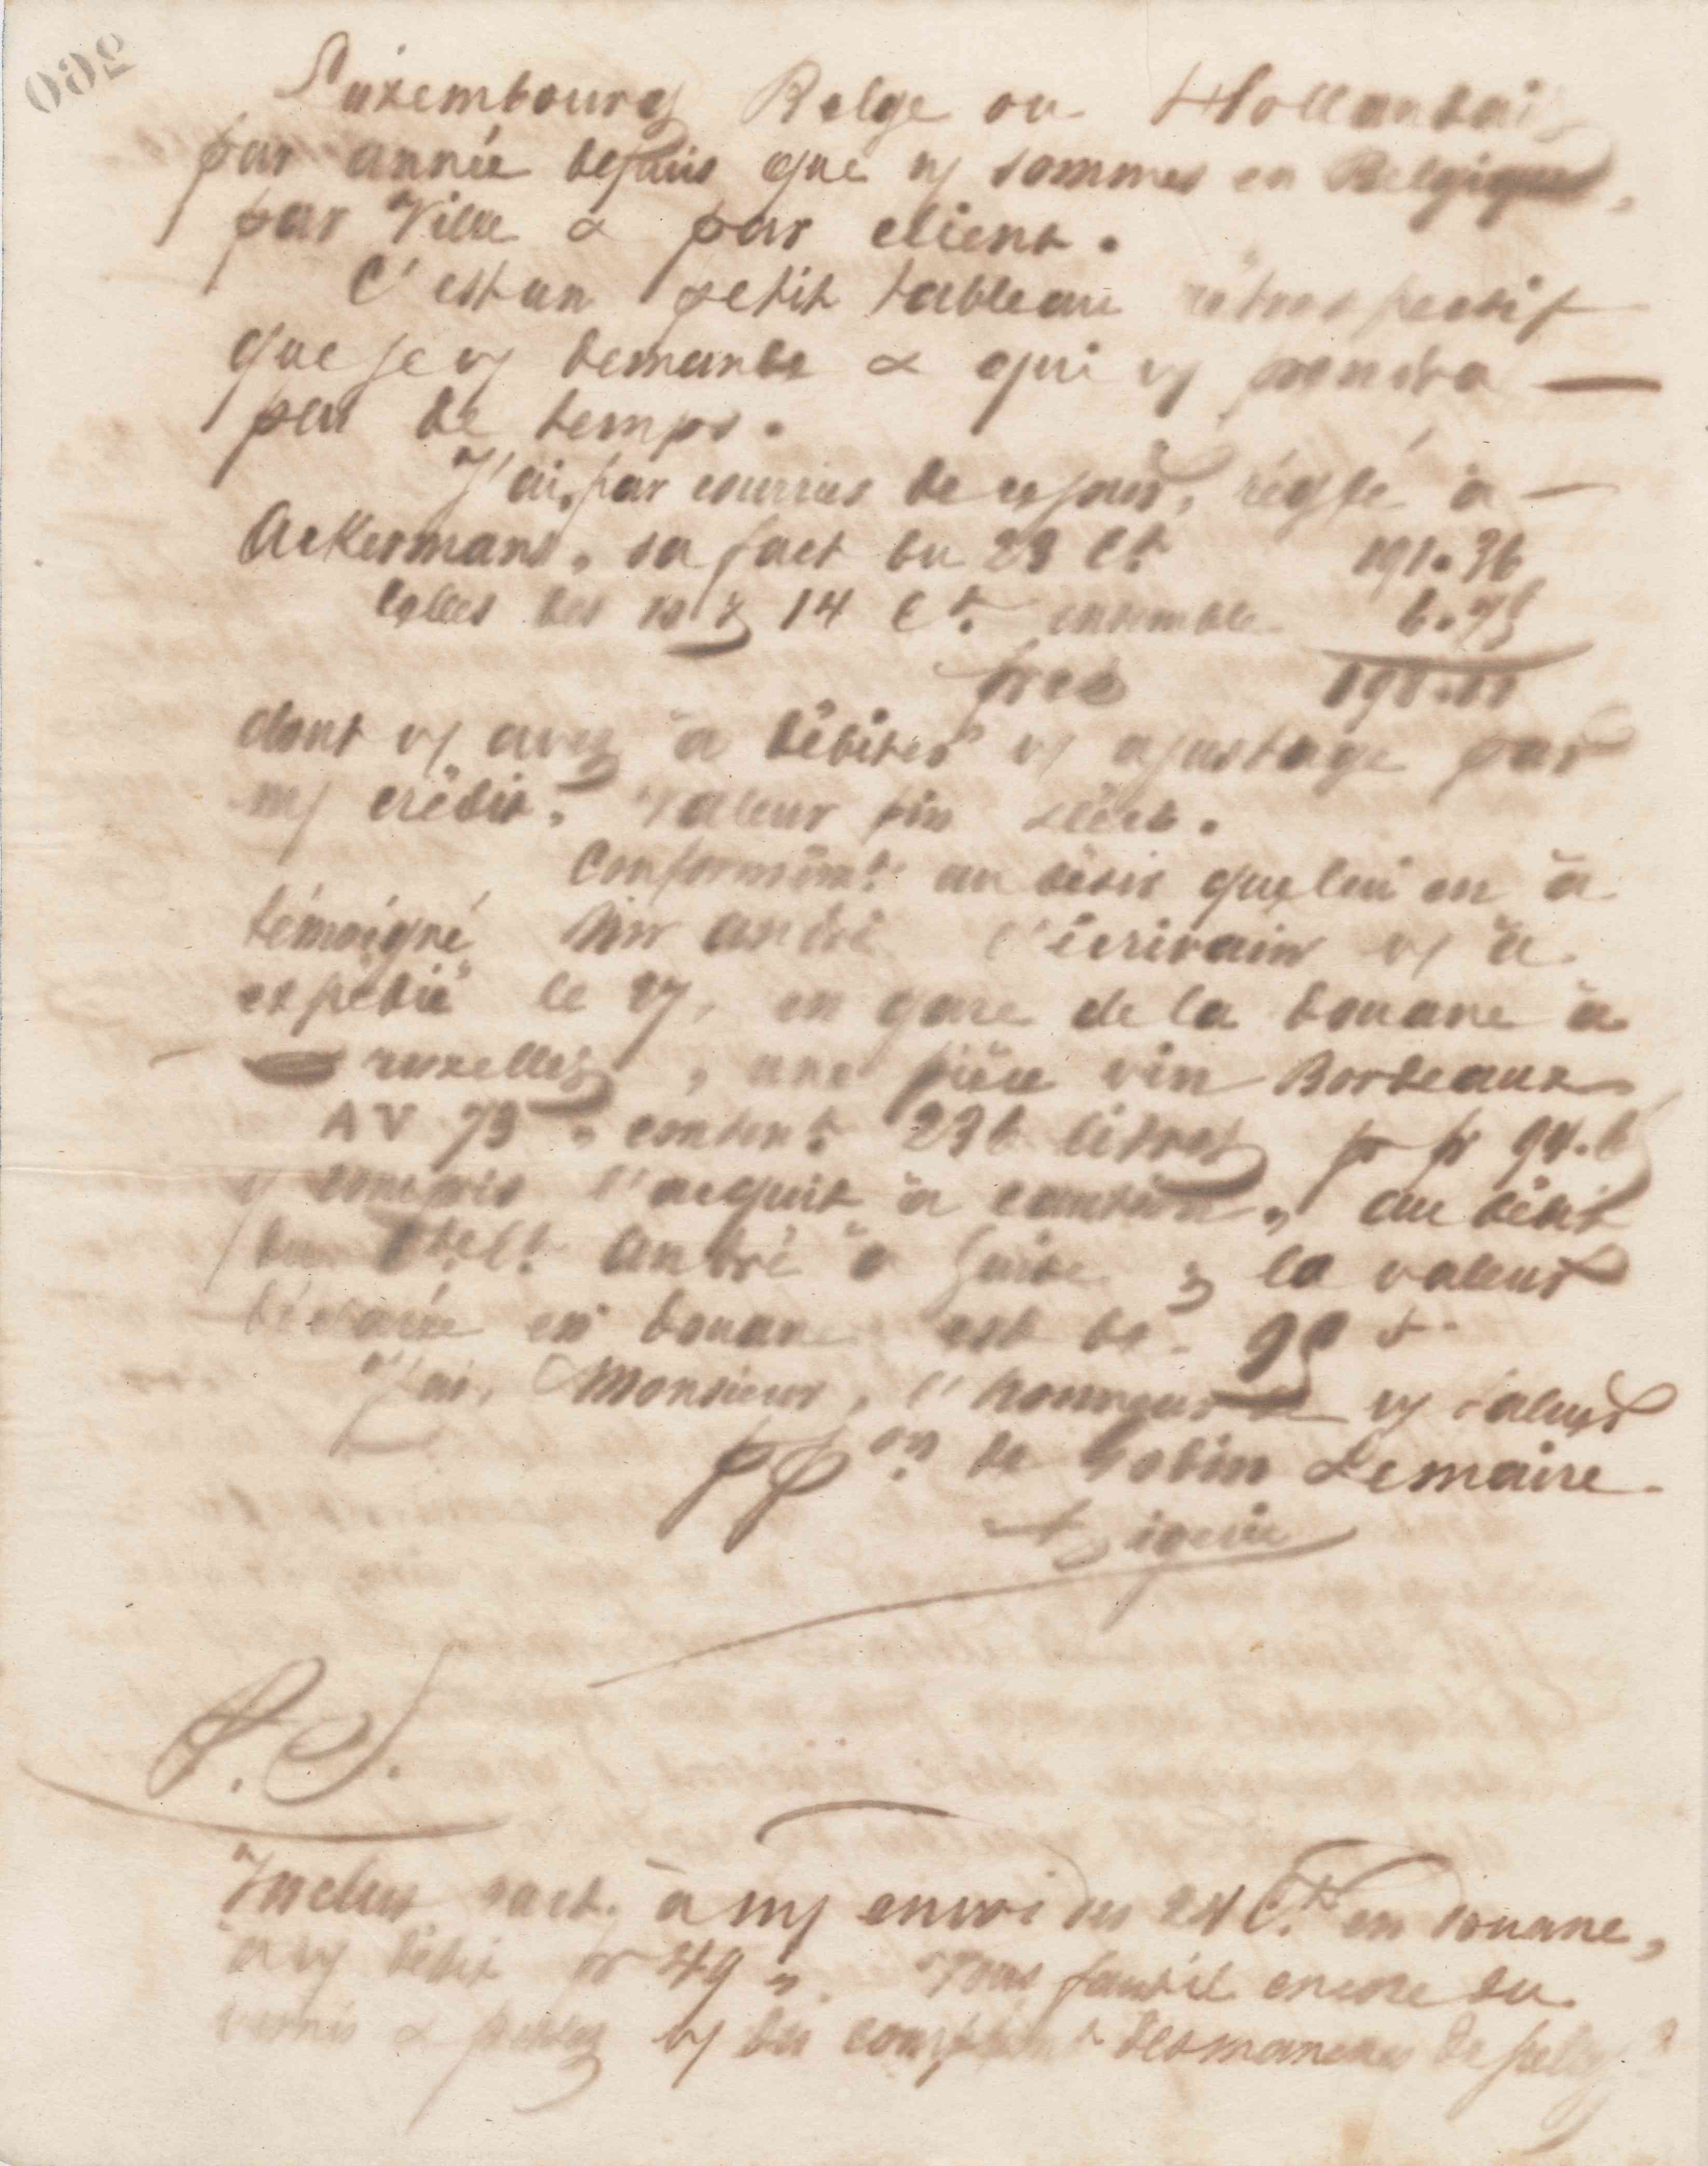 260
Luxembourg Belge ou Hollandais
par année depuis que ns sommes en Belgique,
par Ville & par client.
C'est un petit tableau rétrospectif
que je vs demande & qui vs prendra
peu de temps.
J'ai, par courrier de ce jour, réglé à
Ackermans, sa fact du 23 Ct 191.36
celles des 10 & 14 Ct. ensemble 6.75
frcs 198.11
dont vs avez à débiter vs ajustage par
ms crédit. Valeur fin
Conformémt. au désir que lui en a
témoigné Mr André l'écrivain vs a
expédié le 27, en gare de la douane à
Bruxelles, une pièce vin Bordeaux
AV 73, content. 236 litres pr fr
y compris l'acquit à caution, au débit
André à Guise ; la valeur
en douane est de 95
J'ai, Monsieur, l'honneur de vs saluer
pp on de Godin Lemaire
P.S.
Inclus fact. à ms envoi des 24 Ct. en douane,
à vs débit fr 49 ". Vous faut-il encore du
vernis & vs du